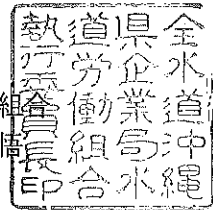 全水道沖縄
県企業局水
道労働組合
執行委員長印
組合